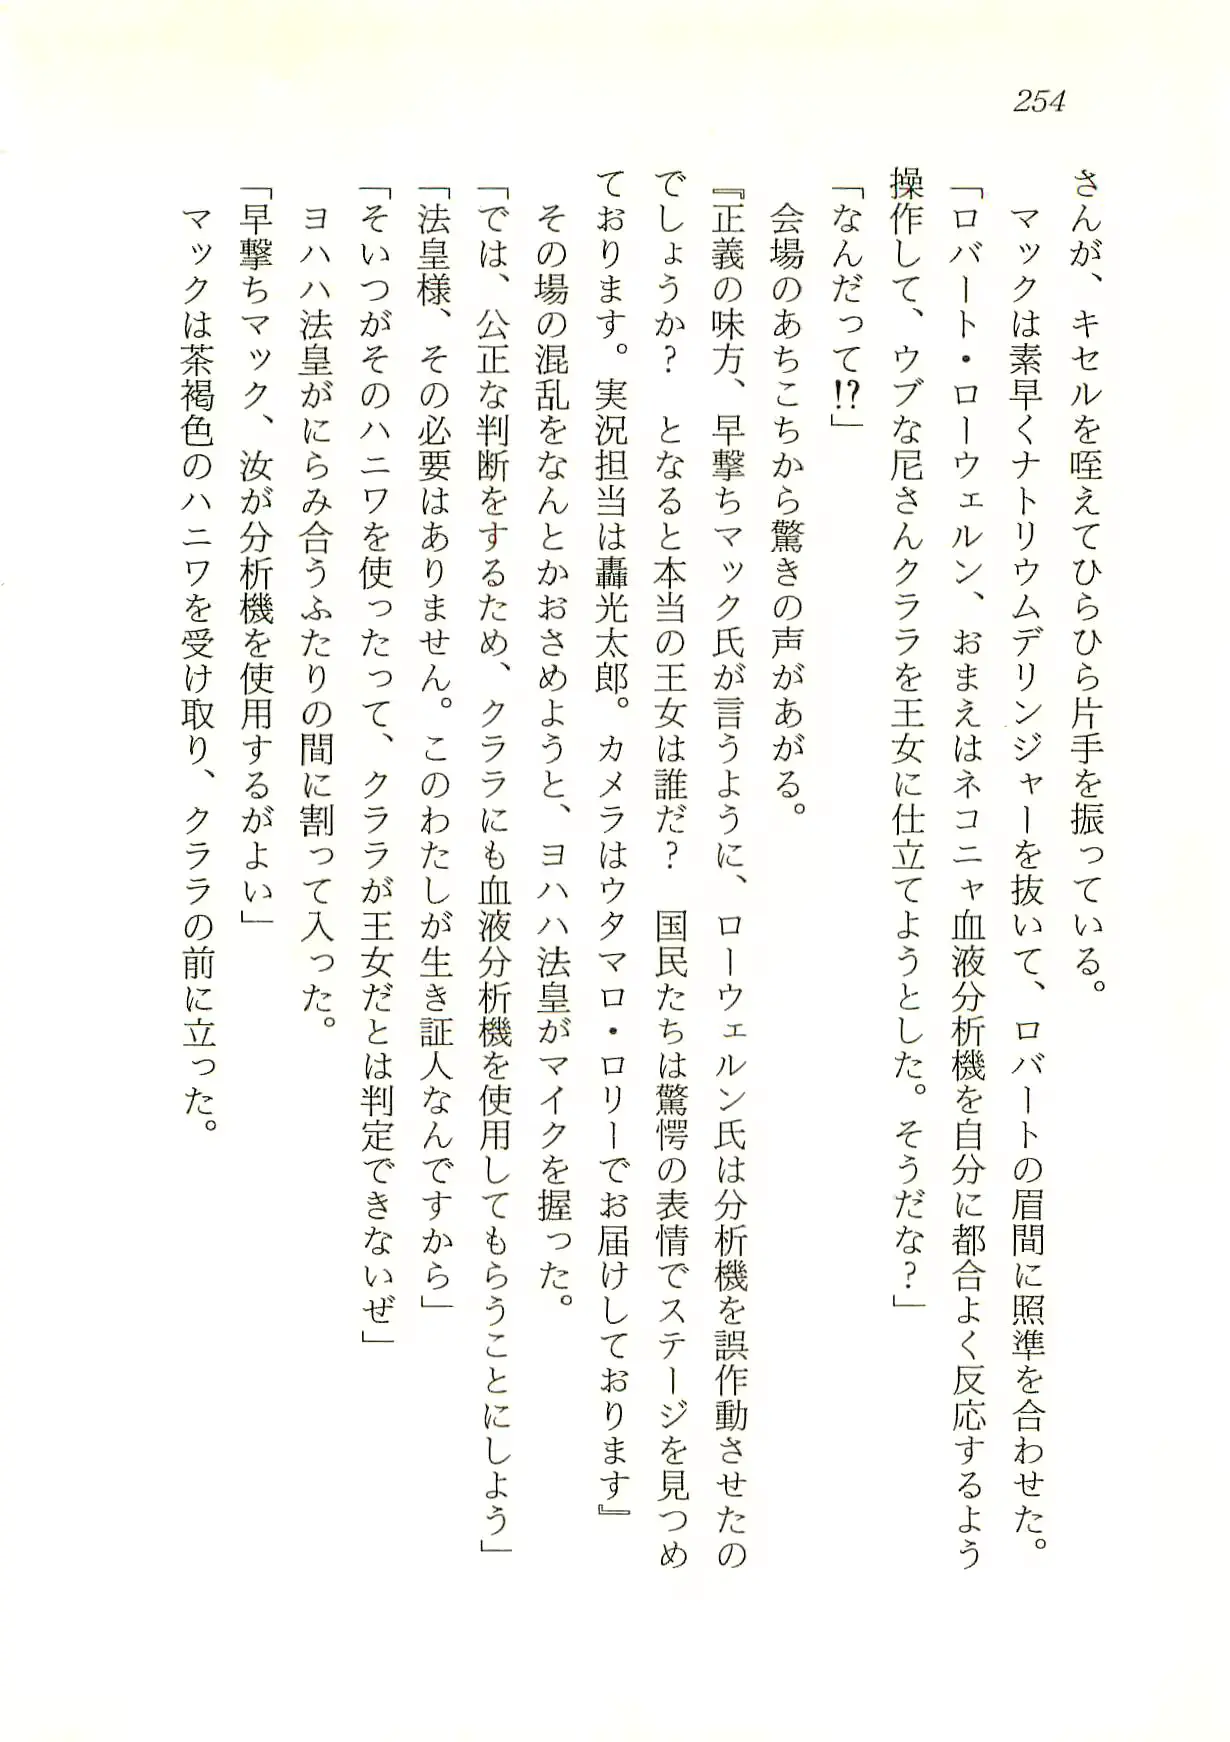 254
さんが、キセルを咥えてひらひら片手を振っている。
マックは素早くナトリウムデリンジャーを抜いて、ロバートの眉間に照準を合わせた。
「ロバート・ローウェルン、おまえはネコニャ血液分析機を自分に都合よく反応するよう
操作して、ウブな尼さんクララを王女に仕立てようとした。そうだな？」
「なんだって!?」
会場のあちこちから驚きの声があがる。
『正義の味方、早撃ちマック氏が言うように、ローウェルン氏は分析機を誤作動させたの
でしょうか？　となると本当の王女は誰だ？　国民たちは驚愕の表情でステージを見つめ
ております。実況担当は轟光太郎。カメラはウタマロ・ロリーでお届けしております』
その場の混乱をなんとかおさめようと、ヨハハ法皇がマイクを握った。
「では、公正な判断をするため、クララにも血液分析機を使用してもらうことにしよう」
「法皇様、その必要はありません。このわたしが生き証人なんですから」
「そいつがそのハニワを使ったって、クララが王女だとは判定できないぜ」
ヨハハ法皇がにらみ合うふたりの間に割って入った。
「早撃ちマック、汝が分析機を使用するがよい」
マックは茶褐色のハニワを受け取り、クララの前に立った。